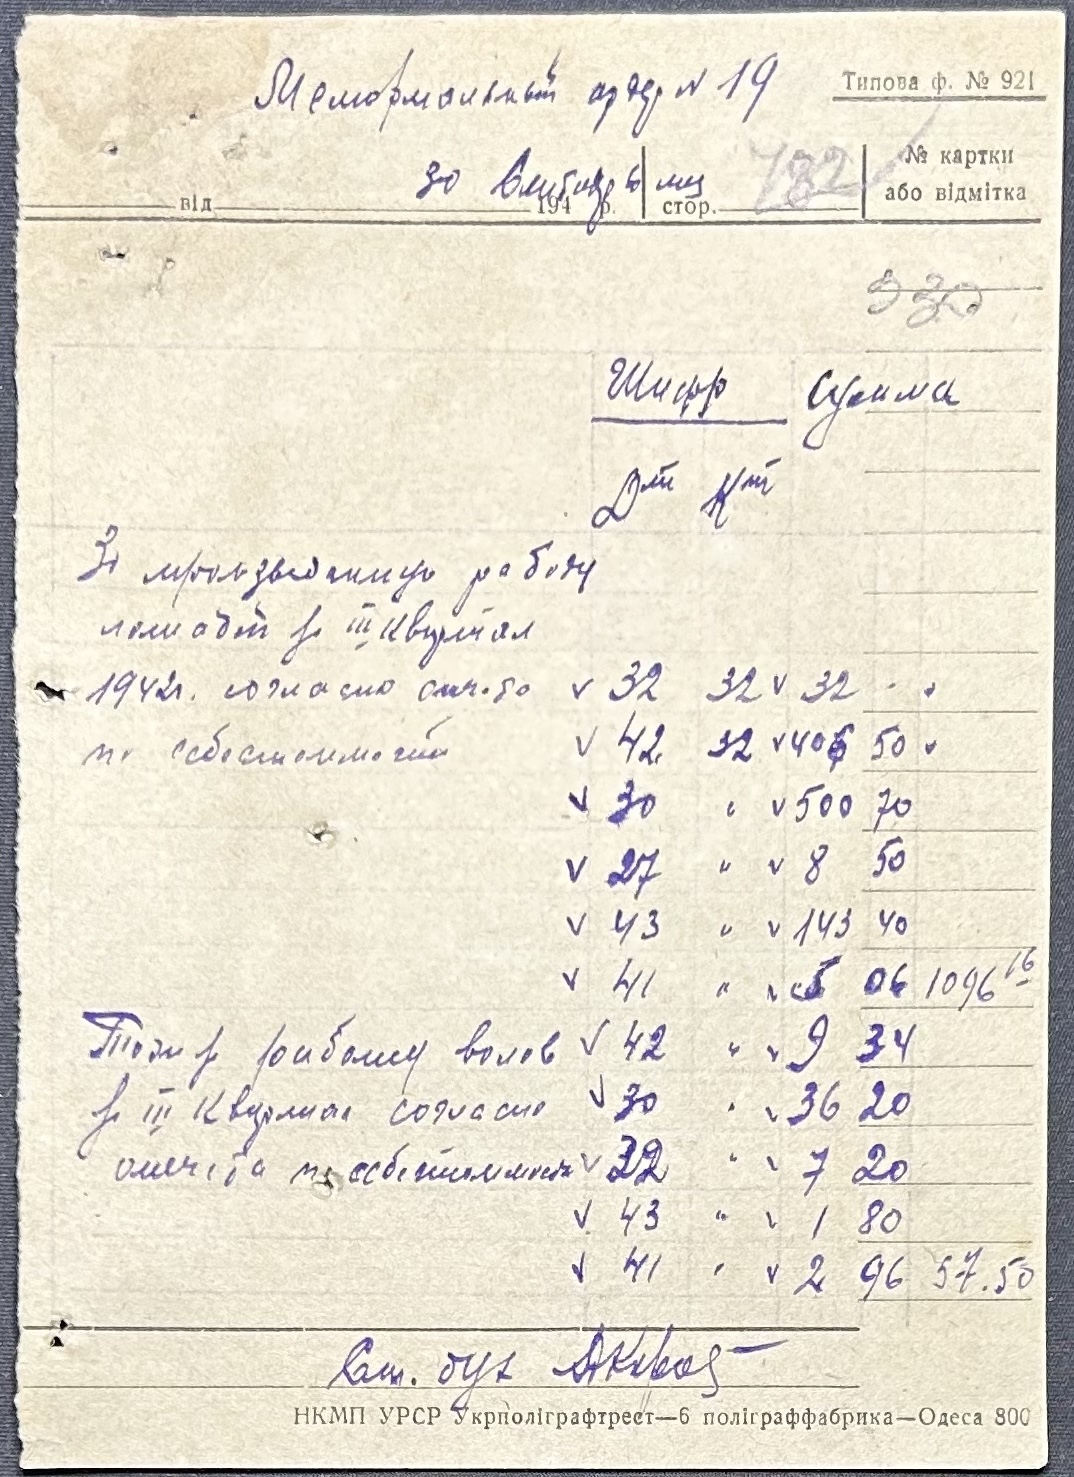 Мемориальный ордер № 19
Типова ф. № 921
30 Сентября мц
від 194 р. стор. 782
№ картки
або відмітка
930
Шифр Сумма
Дт Кт
За произведенную работу
лошадей за III Квартал
1942г. согласно отчета 32 32 32 - -
по себестоимости 42 32 406 50
30 " 500 70
27 " 8 50
43 " 143 40
41 " 5 06 1096 16
Тоже за работу волов 42 " 9 34
за III Квартал согласно 30 " 36 20
отчета по себестоимости 32 " 7 20
43 " 1 80
41 " 2 96 57.50
Ст. бух
НКМП УРСР Укрполіграфтрест—6 поліграффабрика—Одеса 800